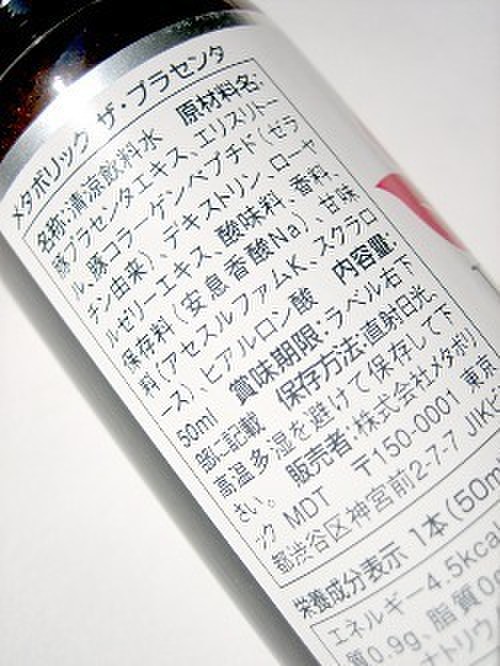 メタボリック ザ・プラセンタ
名称:清涼飲料水 原材料名:
豚プラセンタエキス、エリスリトー
ル、豚コラーゲンペプチド(ゼラ
チン由来)、デキストリン、ローヤ
ルゼリーエキス、酸味料、香料、
保存料(安息香酸Na)、甘味
料(アセスルファムK、スクラロ
ース)、ヒアルロン酸 内容量:
50ml 賞味期限:ラベル右下
部に記載 保存方法:直射日光、
高温多湿を避けて保存して下
さい。 販売者:株式会社メタボリ
ック MDT 〒150-0001 東京
都渋谷区神宮前2-7-7 JIK
栄養成分表示 1本(50m
エネルギー4.5kca
質0.9g、脂質0
ナトリウ